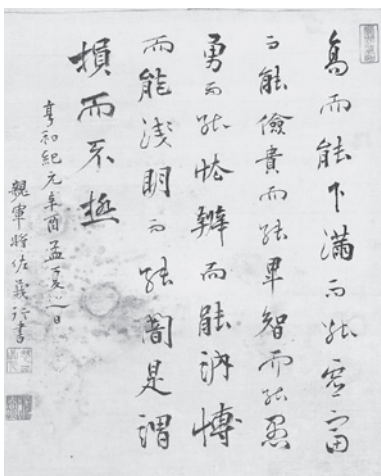 高而能下満而能虚富
而能儉貴而能卑智而能愚
勇而能怯辯而能訥博
而能淺明而能闇是謂
損而不極
享和紀元辛酉孟夏之日
親軍将佐義行書